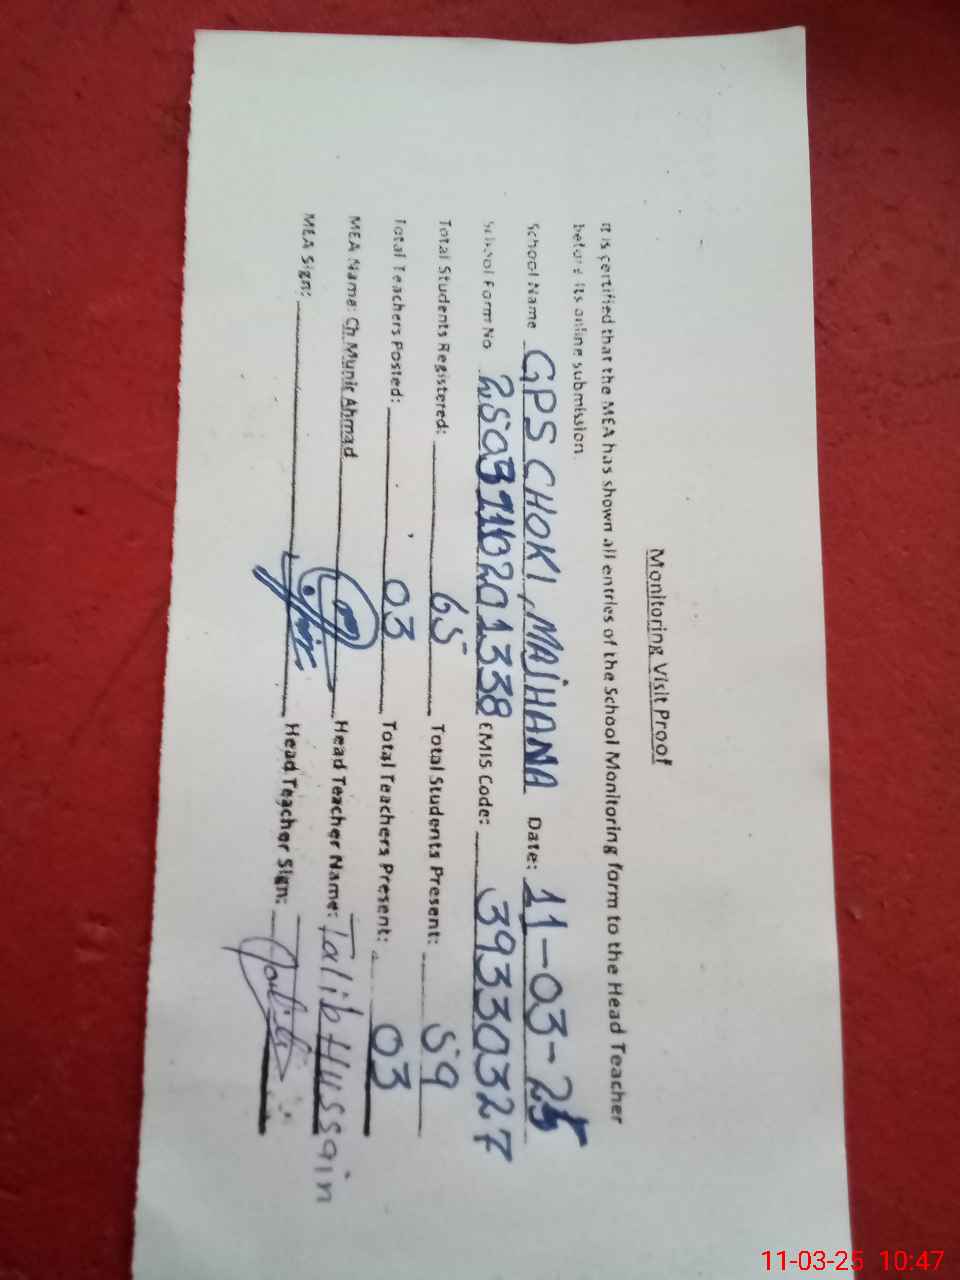 Monitoring Visit Proof
It is certified that the MEA has shown all entries of the School Monitoring form to the Head Teacher
before its online submission.
School Name GPS CHOKI, MAJHANA Date: 11-03-25
School Form No EMIS Code: 39330327
Total Students Registered: 65 Total Students Present: 59
Total Teachers Posted: 03 Total Teachers Present: 03
MEA Name: Ch.Munir Ahmad Head Teacher Name: Talib Hussain
MEA Sign: Head Teacher Sign:
11-03-25 10:47